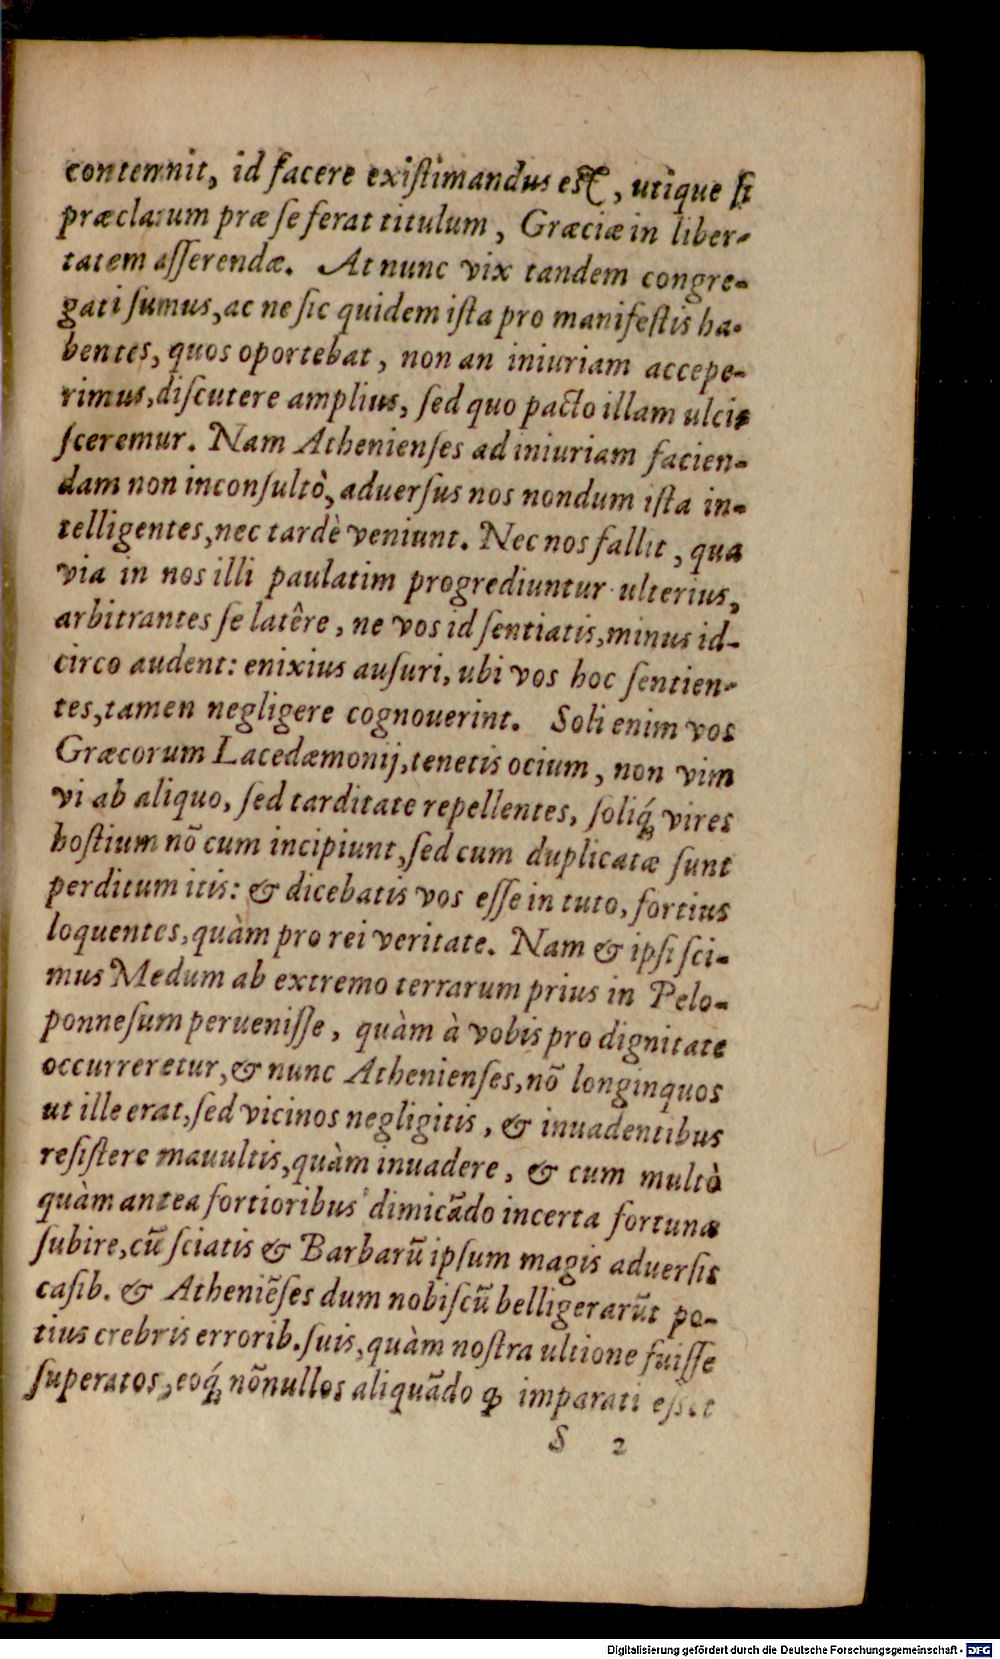 contemnit, id facere exiſtimandus eſt, utique ſi
præclarum præ ſe ferat titulum, Græciæ in liber-
tatem aſſerendæ. At nunc vix tandem congre-
gati ſumus, ac ne ſic quidem iſta pro manifeſtis ha-
bentes, quos oportebat, non an iniuriam accepe-
rimus, diſcutere amplius, ſed quo pacto illam ulci-
ſceremur. Nam Athenienſes ad iniuriam facien-
dam non inconſultò, aduerſus nos nondum iſta in-
telligentes, nec tardè veniunt. Nec nos fallit, qua
via in nos illi paulatim progrediuntur ulterius,
arbitrantes ſe latêre, ne vos id ſentiatis, minus id-
circo audent: enixius auſuri, ubi vos hoc ſentien-
tes, tamen negligere cognouerint. Soli enim vos
Græcorum Lacedæmonij, tenetis ocium, non vim
vi ab aliquo, ſed tarditate repellentes, ſoliq́; vires
hoſtium nõ cum incipiunt, ſed cum duplicatæ ſunt
perditum itis: & dicebatis vos eſſe in tuto, fortius
loquentes, quàm pro rei veritate. Nam & ipſi ſci-
mus Medum ab extremo terrarum prius in Pelo-
ponneſum perueniſſe, quàm à vobis pro dignitate
occurreretur, & nunc Athenienſes, nõ longinquos
ut ille erat, ſed vicinos negligitis, & inuadentibus
reſiſtere mauultis, quàm inuadere, & cum multò
quàm antea fortioribus dimicãdo incerta fortunæ
ſubire, cũ ſciatis & Barbarũ ipſum magis aduerſis
caſib. & Atheniẽſes dum nobiſcũ belligerarũt po-
tius crebris errorib. ſuis, quàm noſtra ultione fuiſſe
ſuperatos, eoq́; nõnullos aliquãdo ꝙ imparati eſſet
S 2
Digitalisierung gefördert durch die Deutsche Forschungsgemeinschaft - DFG